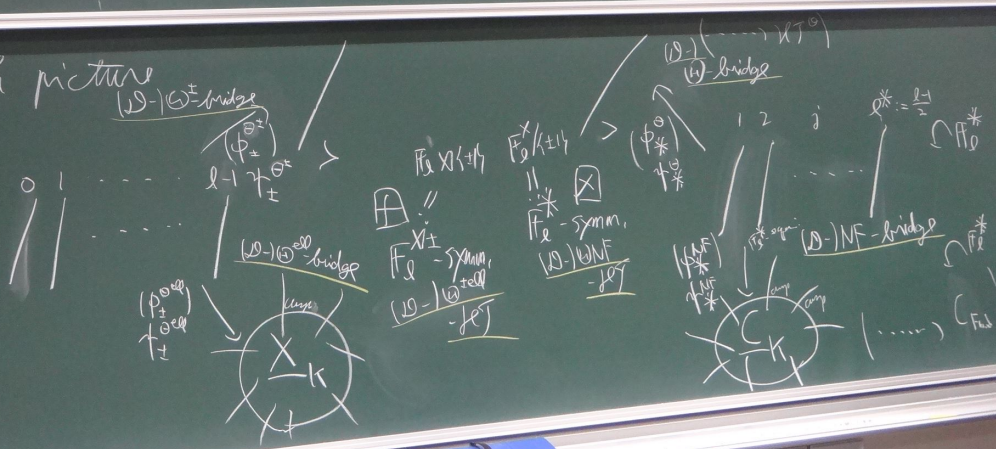 picture
(D-)Θ±-bridge
(φ±^Θ±
ψ±^Θ±
0 1 ...... l-1
>
......
(D-)Θ^ell-bridge
(φ±^Θell
ψ±^Θell
cusp
X_K
±
F_l ⋊ {±1}
⊞ :=
F_l^⋊± -symm.
(D-)Θ^±ell
-HT
F_l^× / {±1}
:= ⊠
F_l^* -symm.
(D-)ΘNF
-HT
>
(D-)(...... HT^Θ)
(D-)Θ-bridge
(φ_*^Θ
ψ_*^Θ
1 2 j l^* := (l-1)/2
F_l^*
......
(D-)NF-bridge
(φ_*^NF
ψ_*^NF
cusp
cusp
C_K
(......)
F_l^*